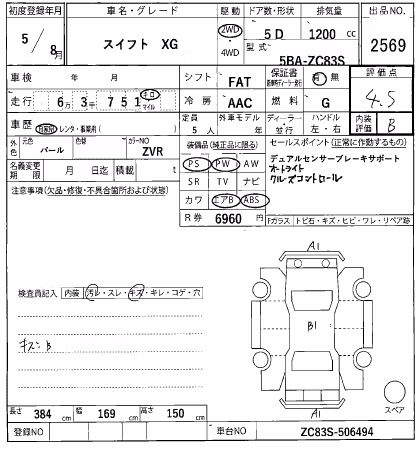 初度登録年月 車名・グレード 駆動 ドア数・形状 排気量 出品NO.
5/8月 スイフト XG 2WD・4WD 5D 1200 cc 2569
型式 5BA-ZC83S
車検 年 月 シフト FAT 保証書 有 無 評価点 4.5
走行 6万3千751 キロ マイル 冷房 AAC 燃料 G
車歴 自家用・レンタ・事業用( ) 定員 5人 外車モデル 年 ディーラー・並行 ハンドル 左・右 内装評価 B
外色 元色 パール 色替 カラーNO ZVR 装備品(純正品に限る) セールスポイント(正常に作動するもの)
PS PW AW デュアルセンサーブレーキサポート
名義変更期限 月 日迄 積載 t SR TV ナビ オートライト
注意事項(欠品・修復・不具合箇所および状態) カワ エアB ABS クルーズコントロール
R券 6960円 Fガラス トビ石・キズ・ヒビ・ワレ・リペア跡
A1
検査員記入 内装 汚レ・スレ・キズ・キレ・コゲ・穴
B1
キズ:B
長さ 384 cm 幅 169 cm 高さ 150 cm A1 スペア
登録NO 車台NO ZC83S-506494